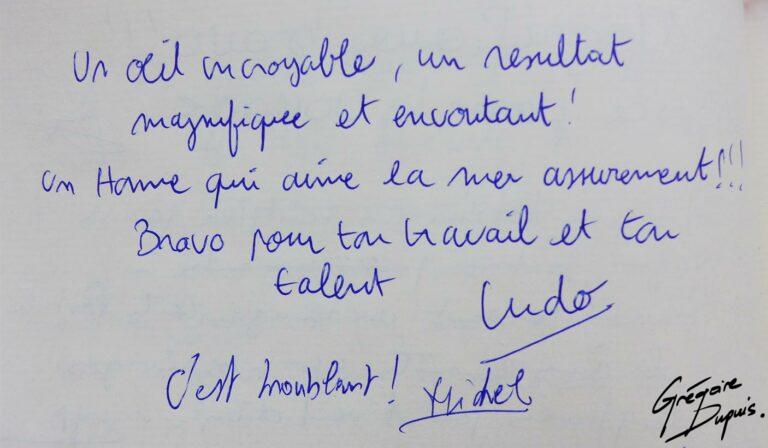 Un œil incroyable, un resultat
magnifique et envoutant !
un Homme qui aime la mer assurement !!!
Bravo pour ton travail et ton
talent
Ludo
C'est troublant ! Michel
Grégoire
Dupuis.